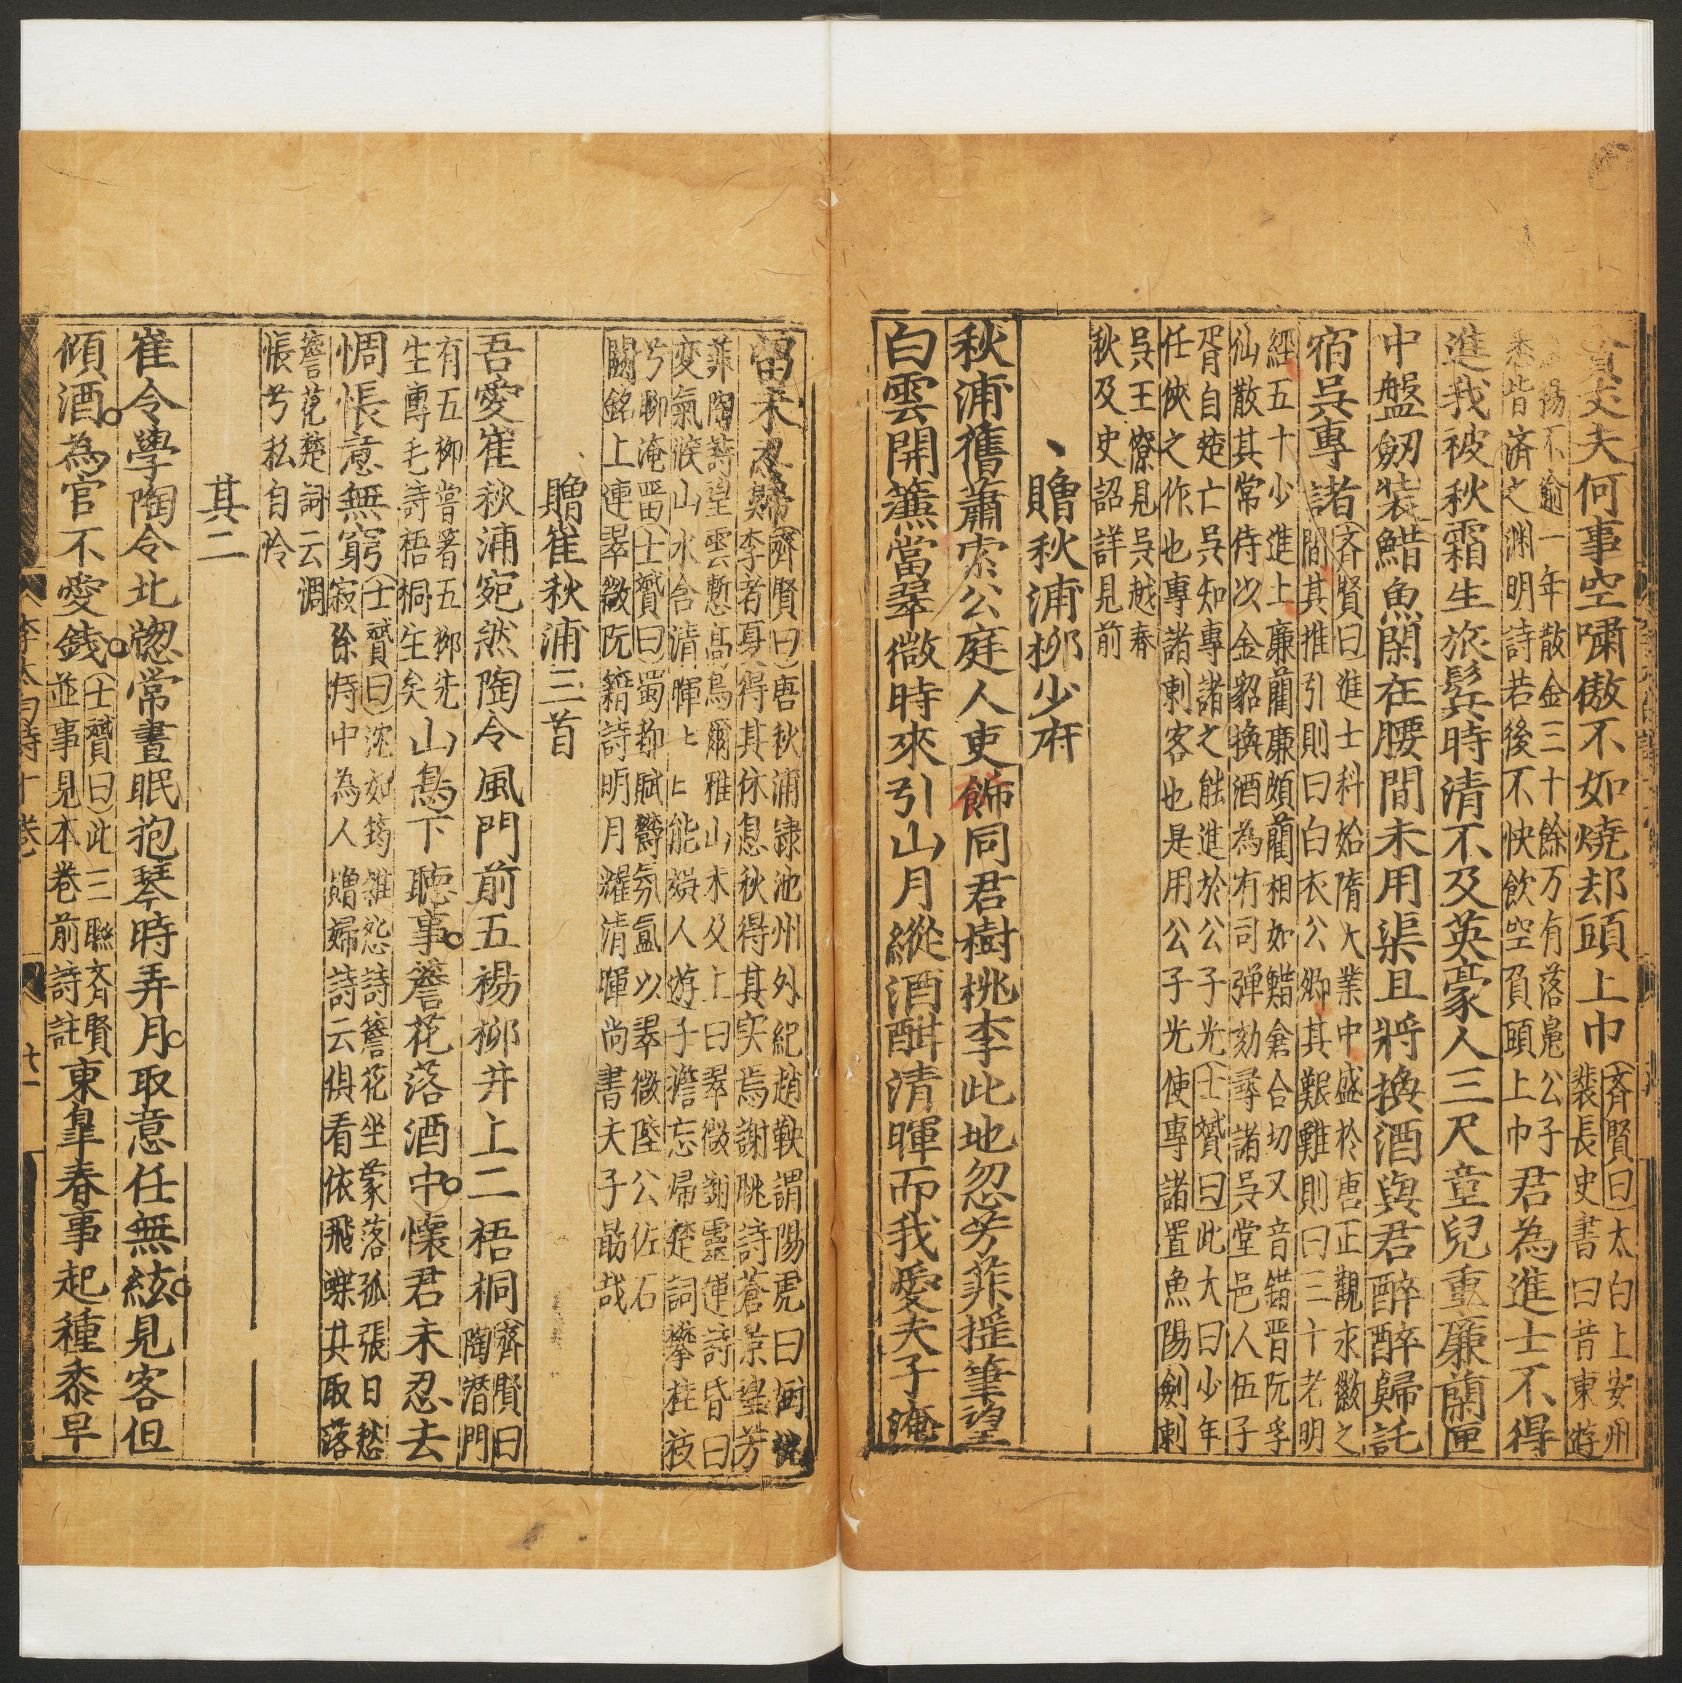 丈夫何事空嘯傲不如燒却頭上巾齊賢曰太白上安州
裴長史書曰昔東遊
揚不逾一年散金三十餘万有落魄公子
悉皆濟之淵明詩若後不快飲空負頭上巾君為進士不得
進我被秋霜生旅鬂時清不及英豪人三尺童兒重廉藺匣
中盤劒装䱜魚閑在腰間未用渠且將換酒與君醉醉歸託
宿吳專諸齊賢曰進士科始隋大業中盛於唐正觀永徽之
間其推引則曰白衣公卿其艱難則曰三十老明
經五十少進士廉藺廉頗藺相如䱜倉合切又音錯晋阮孚
仙散其常侍以金貂換酒為有司彈劾尋諸吳堂邑人伍子
胥自楚亡吳知專諸之能進於公子光士贇曰此大曰少年
任俠之作也專諸刺客也是用公子光使專諸置魚陽劍刺
吳王僚見吳越春
秋及史詔詳見前
贈秋浦柳少府
秋浦舊蕭索公庭人吏飾同君樹桃李此地忽芳菲揺筆望
白雲開簾當翠微時來引山月縱酒酣清暉而我愛夫子淹
留未忍歸齊賢曰唐秋浦隸池州外紀趙鞅謂陽虎曰樹桃
李者夏得其休息秋得其实焉謝眺詩蒼景望芳
菲陶詩望雲慙高鳥爾雅山未及上曰翠微謝靈運詩昏曰
变氣候山水含清暉㆑㆑能娱人遊子憺忘歸楚詞攀桂枝
兮聊淹畱士贇曰蜀都賦鬱氛氲以翠微陸公佐石
闕銘上連翠微阮籍詩明月濯清暉尚書夫子勗哉
贈崔秋浦三首
吾愛崔秋浦宛然陶令風門前五楊柳井上二梧桐齊賢曰
陶潜門
有五柳嘗著五柳先
生傳毛詩梧桐生矣山鳥下聽事簷花落酒中懷君未忍去
惆悵意無窮士贇曰沈如筠雜怨詩簷花坐蒙落孤張日愁
寂徐侍中為人贈婦詩云俱看依飛蝶共取落
簷花楚詞云惆
悵兮私自怜
其二
崔令學陶令北䆫常晝眠抱琴時弄月取意任無絃見客但
傾酒為官不愛錢士贇曰此三聯齊賢
並事見本巻前詩註東臯春事起種黍早
李太白詩十巻
廿一